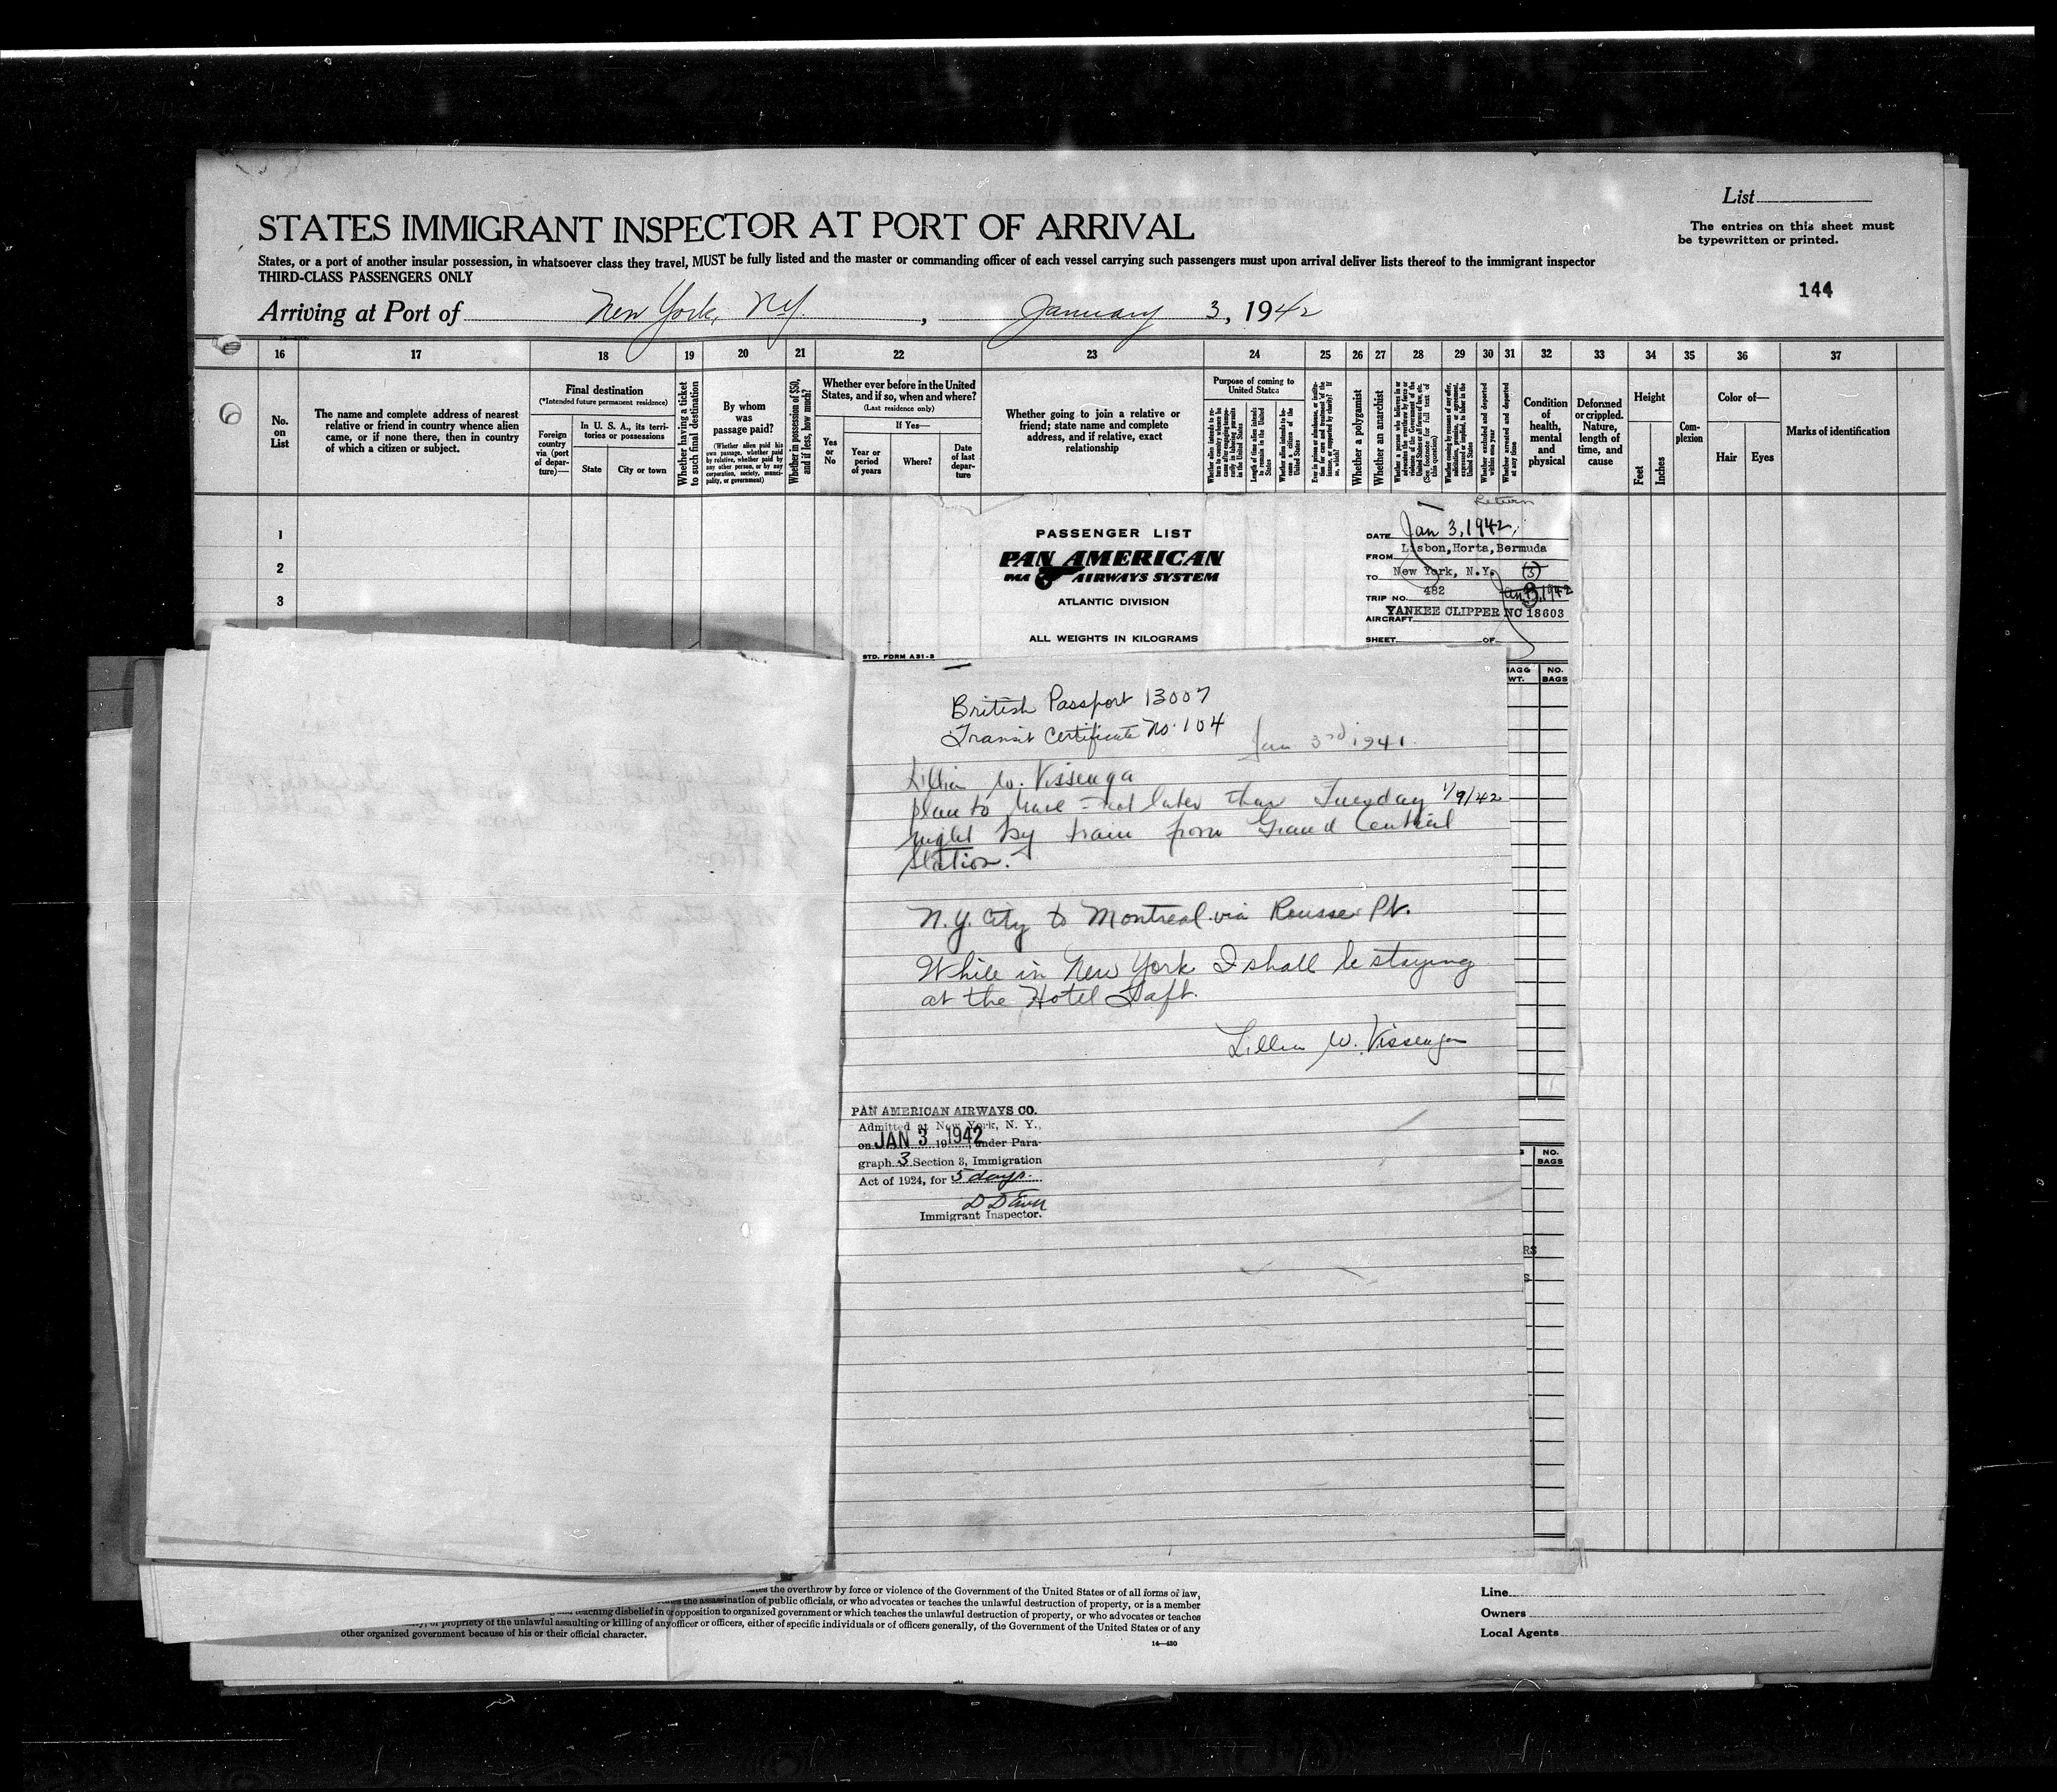 List
The entries on this sheet must
be typewritten or printed.
144
STATES IMMIGRANT INSPECTOR AT PORT OF ARRIVAL
States, or a port of another insular possession, in whatsoever class they travel, MUST be fully listed and the master or commanding officer of each vessel carrying such passengers must upon arrival deliver lists thereof to the immigrant inspector
THIRD-CLASS PASSENGERS ONLY
Arriving at Port of New York, N.Y. , January 3, 1942
16 17 18 19 20 21 22 23 24 25 26 27 28 29 30 31 32 33 34 35 36 37
No.
on
List
The name and complete address of nearest
relative or friend in country whence alien
came, or if none there, then in country
of which a citizen or subject.
Final destination
(*Intended future permanent residence)
Foreign
country
via (port
of depar-
ture)—
In U. S. A., its terri-
tories or possessions
State
City or town
Whether having a ticket
to such final destination
By whom
was
passage paid?
(Whether alien paid his
own passage, whether paid
by relative, whether paid by
any other person, or by any
corporation, society, munici-
pality, or government)
Whether in possession of $50,
and if less, how much?
Whether ever before in the United
States, and if so, when and where?
(Last residence only)
If Yes—
Yes
or
No
Year or
period
of years
Where?
Date
of last
depar-
ture
Whether going to join a relative or
friend; state name and complete
address, and if relative, exact
relationship
Purpose of coming to
United States
Length of time alien intends
to remain in the United
States
Whether alien intends to be-
come a citizen of the
United States
Whether a polygamist
Whether an anarchist
Whether excluded and deported
within one year
Whether arrested and deported
at any time
Condition
of
health,
mental
and
physical
Deformed
or crippled.
Nature,
length of
time, and
cause
Height
Feet
Inches
Com-
plexion
Color of—
Hair
Eyes
Marks of identification
1
2
3
PASSENGER LIST
PAN AMERICAN
PAA AIRWAYS SYSTEM
ATLANTIC DIVISION
ALL WEIGHTS IN KILOGRAMS
STD. FORM A31-3
Return
DATE Jan 3, 1942
FROM Lisbon, Horta, Bermuda
TO New York, N.Y. (3)
TRIP NO. 482 1942
AIRCRAFT YANKEE CLIPPER NC 18603
SHEET OF
BAGG
WT.
NO.
BAGS
British Passport 13007
Transit Certificate No. 104
Jan 3rd 1941.
Lillian W. Vissenga
plan to leave - not later than Tuesday 1/9/42
night by train from Grand Central
Station.
N.Y. City to Montreal via Rouses Pt.
While in New York I shall be staying
at the Hotel Taft.
Lillian W. Vissenga
PAN AMERICAN AIRWAYS CO.
Admitted at New York, N. Y.,
on JAN 3 1942 under Para-
graph 3 Section 3, Immigration
Act of 1924, for 5 days.
Immigrant Inspector.
NO.
BAGS
RS
the overthrow by force or violence of the Government of the United States or of all forms of law,
the assassination of public officials, or who advocates or teaches the unlawful destruction of property, or is a member
teaching disbelief in or opposition to organized government or which teaches the unlawful destruction of property, or who advocates or teaches
or propriety of the unlawful assaulting or killing of any officer or officers, either of specific individuals or of officers generally, of the Government of the United States or of any
other organized government because of his or their official character.
14—430
Line
Owners
Local Agents